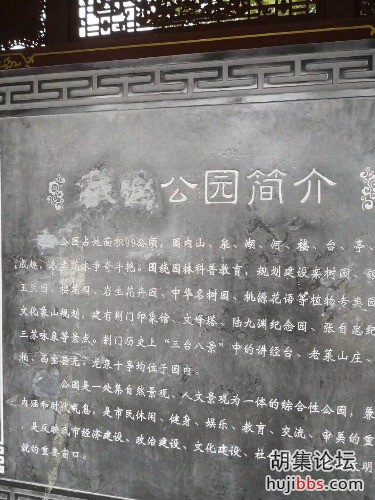 公园简介
公园占地面积99公顷，园内山、泉、湖、河、楼、台、亭、
成趣，名卉佳木争奇斗艳。围绕园林科普教育，规划建设宴树园、
玉兰园、樱菊园、岩生花卉区、中华名树园、桃源花语等植物专类园
文化象山规划，建有荆门印象馆、文峰塔、陆九渊纪念园、张自忠纪
三苏咏泉等景点。荆门历史上“三台八景”中的讲经台、老莱山庄、
柏、西宝昙光、龙泉十亭均位于园内。
公园是一处集自然景观、人文景观为一体的综合性公园，兼
内涵和时代气息，是市民休闲、健身、娱乐、教育、交流、审美的重
，是反映我市经济建设、政治建设、文化建设、社 明
就的重要窗口。
胡集论坛
hujibbs.com